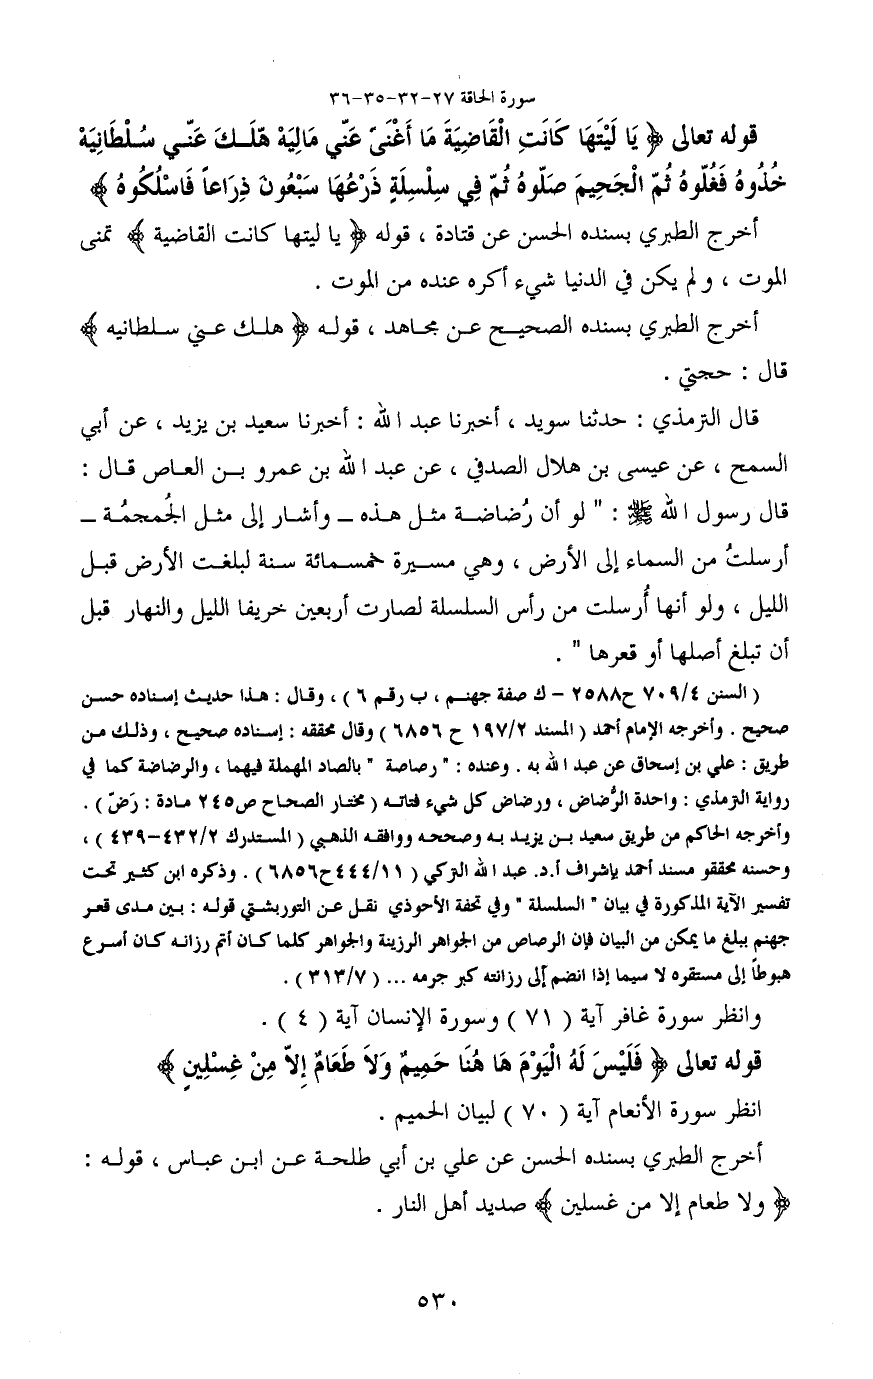 سورة الحاقة ٢٧-٣٢-٣٥-٣٦
قوله تعالى ﴿ يَا لَيْتَهَا كَانَتِ الْقَاضِيَةَ مَا أَغْنَىٰ عَنِّي مَالِيَهْ هَلَكَ عَنِّي سُلْطَانِيَهْ
خُذُوهُ فَغُلّوهُ ثُمّ الْجَحِيمَ صَلّوهُ ثُمّ فِي سِلْسِلَةٍ ذَرْعُهَا سَبْعُونَ ذِرَاعاً فَاسْلُكُوهُ ﴾
أخرج الطبري بسنده الحسن عن قتادة ، قوله ﴿ يا ليتها كانت القاضية ﴾ تمنى
الموت ، ولم يكن في الدنيا شيء أكره عنده من الموت .
أخرج الطبري بسنده الصحيح عن مجاهد ، قوله ﴿ هلك عني سلطانيه ﴾
قال : حجتي .
قال الترمذي : حدثنا سويد ، أخبرنا عبد الله : أخبرنا سعيد بن يزيد ، عن أبي
السمح ، عن عيسى بن هلال الصدفي ، عن عبد الله بن عمرو بن العاص قال :
قال رسول الله ﷺ : " لو أن رُضاضة مثل هذه ـ وأشار إلى مثل الجُمجمُة ـ
أرسلتُ من السماء إلى الأرض ، وهي مسيرة خمسمائة سنة لبلغت الأرض قبل
الليل ، ولو أنها أُرسلت من رأس السلسلة لصارت أربعين خريفا الليل والنهار قبل
أن تبلغ أصلها أو قعرها " .
( السنن ٧٠٩/٤ ح٢٥٨٨ - ك صفة جهنم ، ب رقم ٦ ) ، وقال : هذا حديث إسناده حسن
صحيح . وأخرجه الإمام أحمد ( المسند ١٩٧/٢ ح ٦٨٥٦ ) وقال محققه : إسناده صحيح ، وذلك من
طريق : علي بن إسحاق عن عبد الله به . وعنده : " رصاصة " بالصاد المهملة فيهما ، والرضاضة كما في
رواية الترمذي : واحدة الرُّضاض ، ورضاض كل شيء فتاته ( مختار الصحاح ص٢٤٥ مادة : رَضّ ) .
وأخرجه الحاكم من طريق سعيد بن يزيد به وصححه ووافقه الذهبي ( المستدرك ٤٣٢/٢-٤٣٩ ) ،
وحسنه محققو مسند أحمد بإشراف أ.د. عبد الله التركي ( ٤٤٤/١١ح٦٨٥٦ ) . وذكره ابن كثير تحت
تفسير الآية المذكورة في بيان " السلسلة " وفي تحفة الأحوذي نقل عن التوربشتي قوله : بين مدى قعر
جهنم ببلغ ما يمكن من البيان فإن الرصاص من الجواهر الرزينة والجواهر كلما كان أتم رزانه كان أسرع
هبوطاً إلى مستقره لا سيما إذا انضم إلى رزانته كبر جرمه ... ( ٣١٣/٧ ) .
وانظر سورة غافر آية ( ٧١ ) وسورة الإنسان آية ( ٤ ) .
قوله تعالى ﴿ فَلَيْسَ لَهُ الْيَوْمَ هَا هُنَا حَمِيمٌ وَلاَ طَعَامٌ إِلاّ مِنْ غِسْلِينٍ ﴾
انظر سورة الأنعام آية ( ٧٠ ) لبيان الحميم .
أخرج الطبري بسنده الحسن عن علي بن أبي طلحة عن ابن عباس ، قوله :
﴿ ولا طعام إلا من غسلين ﴾ صديد أهل النار .
٥٣٠